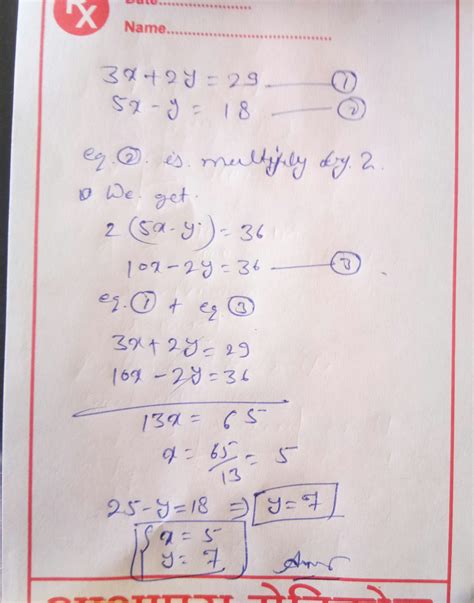 Rx
Date..................
Name..............................
3x + 2y = 29 —— ①
5x - y = 18 —— ②
eq. ② is multiply by 2.
We get.
2(5x - y) = 36
10x - 2y = 36 —— ③
eq. ① + eq ③
3x + 2y = 29
10x - 2y = 36
13x = 65
x = 65/13 = 5
25 - y = 18 ⇒ y = 7
{ x = 5
y = 7
Ans